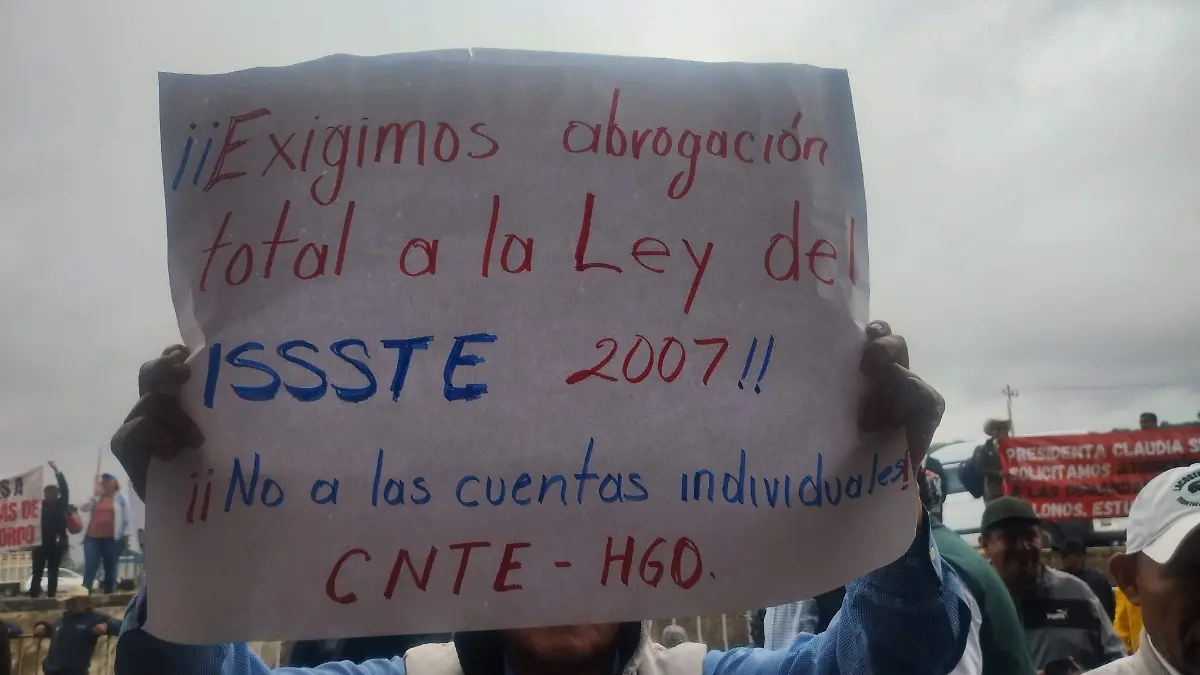 ¡¡Exigimos abrogación
total a la Ley del
ISSSTE 2007!!
¡¡No a las cuentas individuales!
CNTE - HGO.
PRESIDENTA CLAUDIA
SOLICITAMOS
A LAS
LONOS,
S A
AS DE